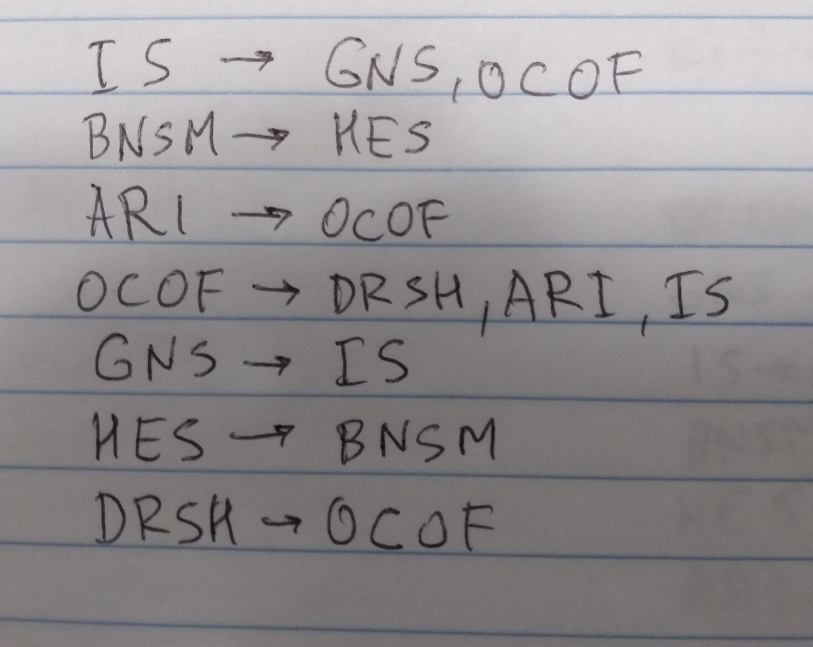 IS → GNS, OCOF
BNSM → HES
ARI → OCOF
OCOF → DRSH, ARI, IS
GNS → IS
HES → BNSM
DRSH → OCOF